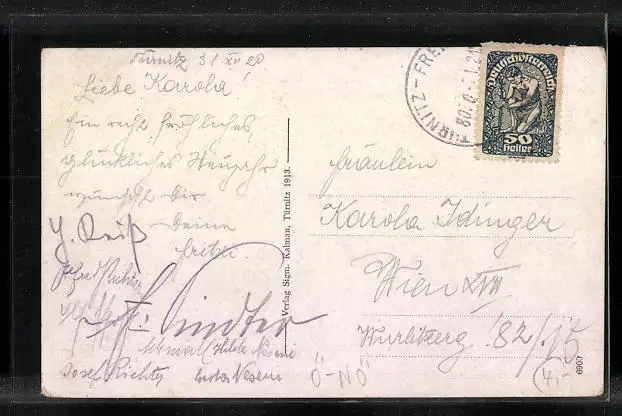 Türnitz 31 XII 20
Liebe Karola!
Ein recht fröhliches
glückliches Neujahr
wünscht Dir
Deine
Fritzi
Josef Richter
Hilde Neseni
Verlag Sigm. Kalman, Türnitz 1913.
TÜRNITZ - FRE
Deutschösterreich
50
Heller
Fräulein
Karola Idinger
Wien XVII
Wurlitzerg. 82/15
Ö-NÖ
6907
4,-